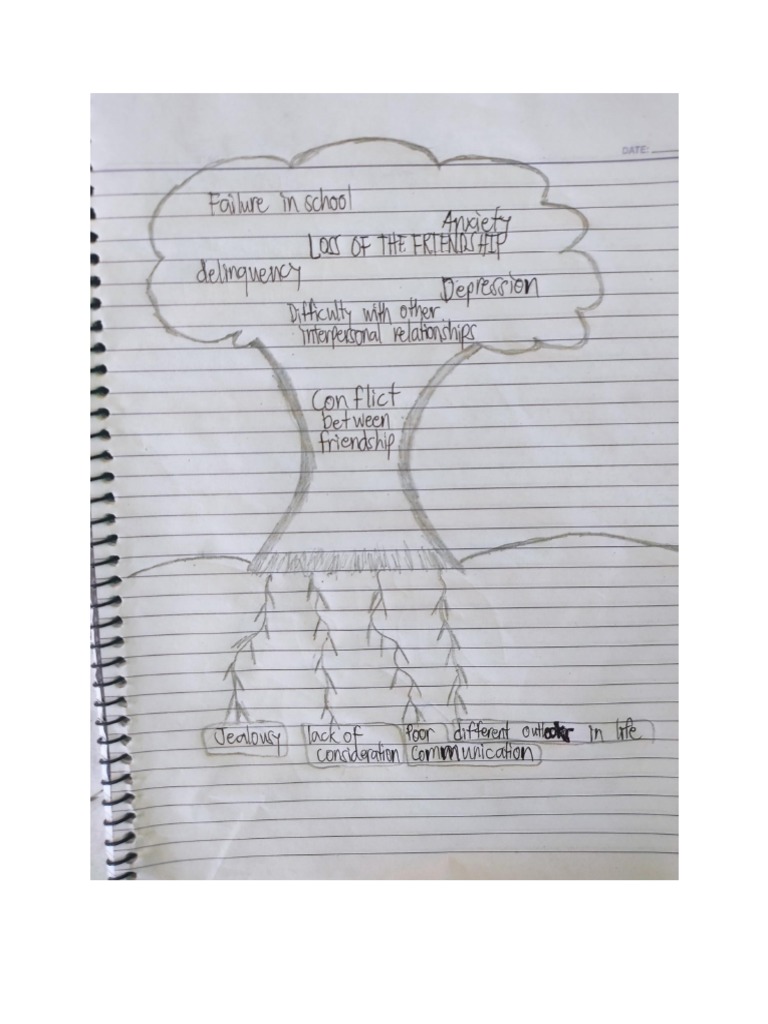 DATE:
Failure in school
Anxiety
LOSS OF THE FRIENDSHIP
delinquency
Depression
Difficulty with other
interpersonal relationships
Conflict
between
friendship
Jealousy
lack of
consideration
Poor
communication
different outlooks in life